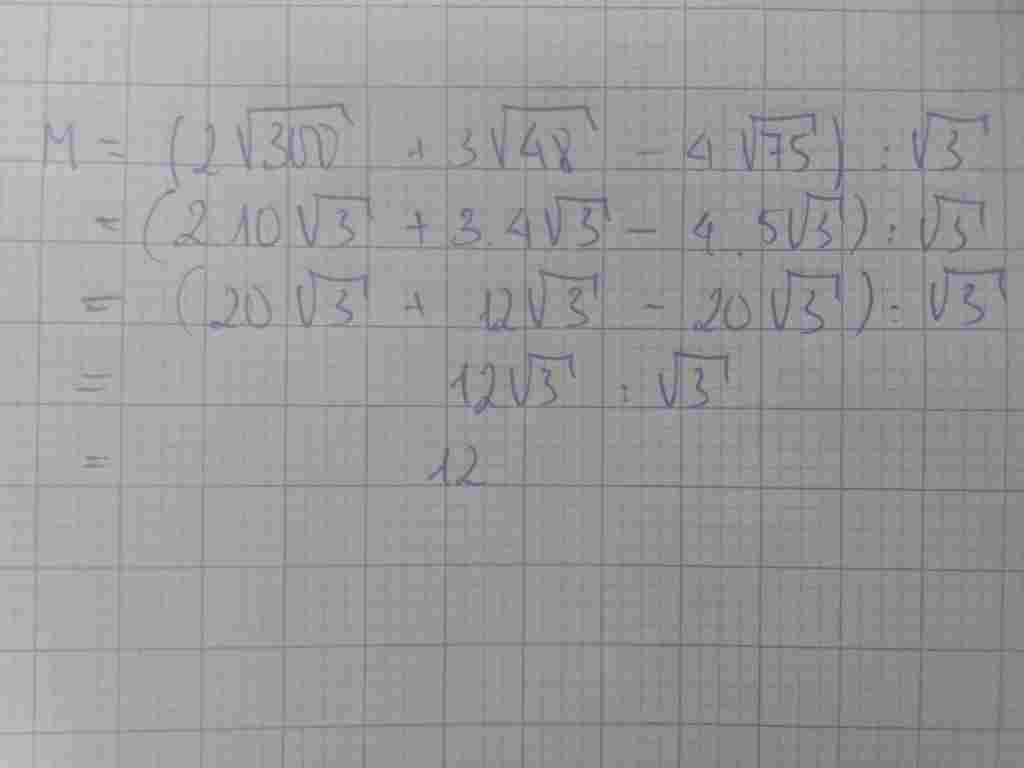 M = (2√300 + 3√48 - 4√75) : √3
= (2.10√3 + 3.4√3 - 4.5√3) : √3
= (20√3 + 12√3 - 20√3) : √3
= 12√3 : √3
= 12